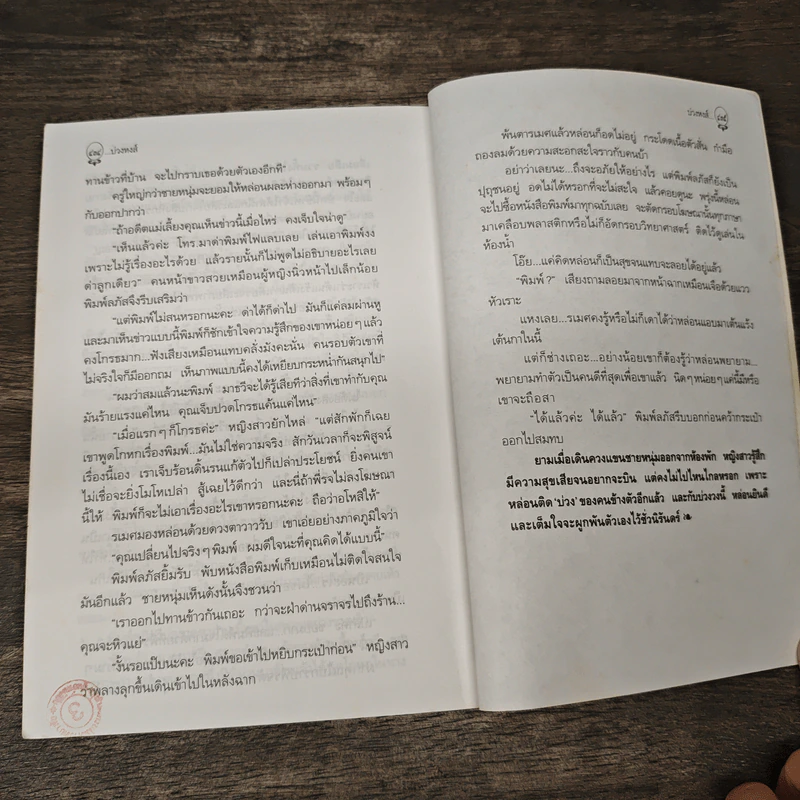 ...บ่วงหงส์
ทานข้าวที่บ้าน จะไปกราบเธอด้วยตัวเองอีกที”
ครู่ใหญ่กว่าชายหนุ่มจะยอมให้หล่อนผละห่างออกมา พร้อมๆ
กับออกปากว่า
“ถ้าอดีตแม่เลี้ยงคุณเห็นข่าวนี้เมื่อไหร่ คงเจ็บใจน่าดู”
“เห็นแล้วค่ะ โทร.มาด่าพิมพ์ไฟแลบเลย เล่นเอาพิมพ์งง
เพราะไม่รู้เรื่องอะไรด้วย แล้วรายนั้นก็ไม่พูดไม่อธิบายอะไรเลย
ด่าลูกเดียว” คนหน้าขาวสวยเหมือนผู้หญิงนิ่วหน้าไปเล็กน้อย
พิมพ์ลภัสจึงรีบเสริมว่า
“แต่พิมพ์ไม่สนหรอกนะคะ ด่าได้ก็ด่าไป มันก็แค่ลมผ่านหู
และมาเห็นข่าวแบบนี้พิมพ์ก็ชักเข้าใจความรู้สึกของเขาหน่อยๆ แล้ว
คงโกรธมาก...ฟังเสียงเหมือนแทบคลั่งมังคะนั่น คนรอบตัวเขาที่
ไม่จริงใจก็มีออกถม เห็นภาพแบบนี้คงได้เหยียบกระหน่ำกันสนุกไป”
“ผมว่าสมแล้วนะพิมพ์ มารวีจะได้รู้เสียทีว่าสิ่งที่เขาทำกับคุณ
มันร้ายแรงแค่ไหน คุณเจ็บปวดโกรธแค้นแค่ไหน”
“เมื่อแรกๆ ก็โกรธค่ะ” หญิงสาวยักไหล่ “แต่สักพักก็เฉย
เขาพูดโกหกเรื่องพิมพ์...มันไม่ใช่ความจริง สักวันเวลาก็จะพิสูจน์
เรื่องนี้เอง เราเจ็บร้อนดิ้นรนแก้ตัวไปก็เปล่าประโยชน์ ยิ่งคนเขา
ไม่เชื่อจะยิ่งโมโหเปล่า สู้เฉยไว้ดีกว่า และนี่ถ้าพี่รจไม่ลงโฆษณา
นี้ให้ พิมพ์ก็จะไม่เอาเรื่องอะไรเขาหรอกนะคะ ถือว่าอโหสิให้”
รเมศมองหล่อนด้วยดวงตาวาววับ เขาเอ่ยอย่างภาคภูมิใจว่า
“คุณเปลี่ยนไปจริงๆ พิมพ์ ผมดีใจนะที่คุณคิดได้แบบนี้”
พิมพ์ลภัสยิ้มรับ พับหนังสือพิมพ์เก็บเหมือนไม่ติดใจสนใจ
มันอีกแล้ว ชายหนุ่มเห็นดังนั้นจึงชวนว่า
“เราออกไปทานข้าวกันเถอะ กว่าจะฝ่าด่านจราจรไปถึงร้าน...
คุณจะหิวแย่”
“งั้นรอแป๊บนะคะ พิมพ์ขอเข้าไปหยิบกระเป๋าก่อน” หญิงสาว
ว่าพลางลุกขึ้นเดินเข้าไปในหลังฉาก
บ่วงหงส์...
พ้นตารเมศแล้วหล่อนก็อดไม่อยู่ กระโดดเนื้อตัวสั่น กำมือ
ถองลมด้วยความสะอกสะใจราวกับคนบ้า
อย่าว่าเลยนะ...ถึงจะอภัยให้อย่างไร แต่พิมพ์ลภัสก็ยังเป็น
ปุถุชนอยู่ อดไม่ได้หรอกที่จะไม่สะใจ แล้วคอยดูนะ พรุ่งนี้หล่อน
จะไปซื้อหนังสือพิมพ์มาทุกฉบับเลย จะตัดกรอบโฆษณานั้นทุกภาษา
มาเคลือบพลาสติกหรือไม่ก็อัดกรอบวิทยาศาสตร์ ติดไว้ดูเล่นใน
ห้องน้ำ
โอ๊ย...แค่คิดหล่อนก็เป็นสุขจนแทบจะลอยได้อยู่แล้ว
“พิมพ์ ?” เสียงถามลอยมาจากหน้าฉากเหมือนเจือด้วยแวว
หัวเราะ
แหงเลย...รเมศคงรู้หรือไม่ก็เดาได้ว่าหล่อนแอบมาเต้นแร้ง
เต้นกาในนี้
แต่ก็ช่างเถอะ...อย่างน้อยเขาก็ต้องรู้ว่าหล่อนพยายาม...
พยายามทำตัวเป็นคนดีที่สุดเพื่อเขาแล้ว นิดๆ หน่อยๆ แค่นี้มีหรือ
เขาจะถือสา
“ได้แล้วค่ะ ได้แล้ว” พิมพ์ลภัสรีบบอกก่อนคว้ากระเป๋า
ออกไปสมทบ
ยามเมื่อเดินควงแขนชายหนุ่มออกจากห้องพัก หญิงสาวรู้สึก
มีความสุขเสียจนอยากจะบิน แต่คงไม่ไปไหนไกลหรอก เพราะ
หล่อนติด ‘บ่วง’ ของคนข้างตัวอีกแล้ว และกับบ่วงวงนี้ หล่อนยินดี
และเต็มใจจะผูกพันตัวเองไว้ชั่วนิรันดร์